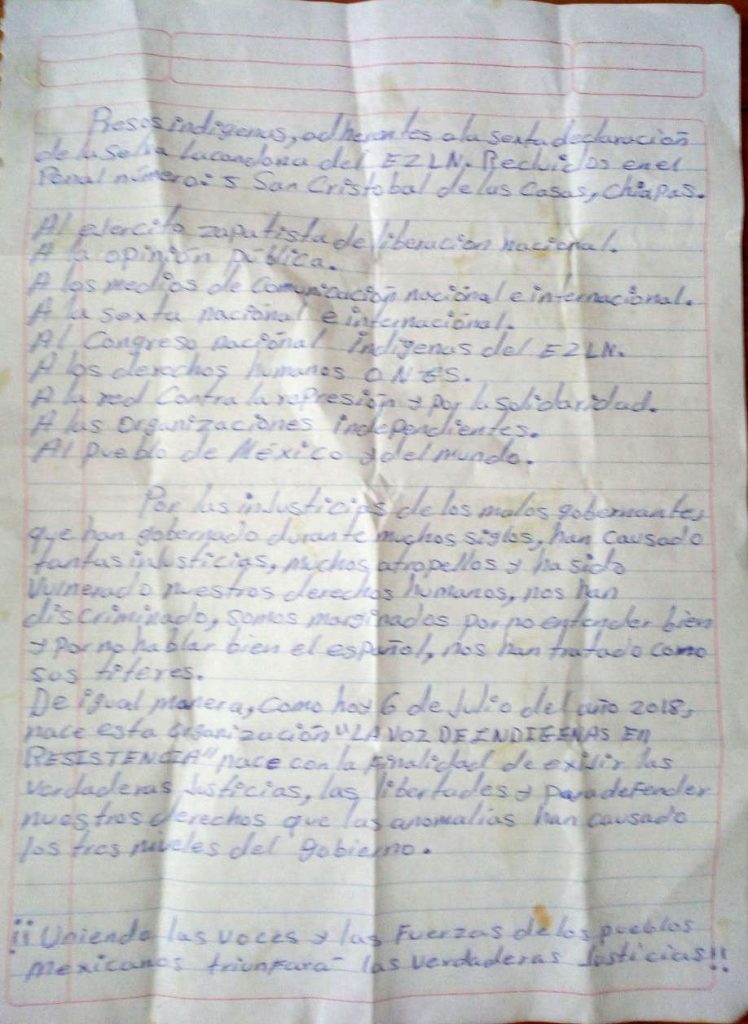 Presos indigenas, adherentes a la sexta declaración
de la Selva Lacandona del EZLN. Recluidos en el
Penal número: 5 San Cristobal de las Casas, Chiapas.
Al ejercito zapatista de liberación nacional.
A la opinión pública.
A los medios de comunicación nacional e internacional.
A la sexta nacional e internacional.
Al Congreso nacional indigenas del EZLN.
A los derechos humanos ONES.
A la red contra la represión y por la solidaridad.
A las organizaciones independientes.
Al pueblo de México y del mundo.
Por las injusticias de los malos gobernantes
que han gobernado durante muchos siglos, han causado
tantas injusticias, muchos atropellos y ha sido
vulnerado nuestros derechos humanos, nos han
discriminado, somos marginados por no entender bien
y por no hablar bien el español, nos han tratado como
sus titeres.
De igual manera, como hoy 6 de Julio del año 2018,
nace esta organización "LA VOZ DE INDIGENAS En
RESISTENCIA" nace con la finalidad de exijir las
verdaderas Justicias, las libertades y para defender
nuestros derechos que las anomalias han causado
los tres niveles del gobierno.
¡¡Uniendo las voces y las Fuerzas de los pueblos
mexicanos triunfará las verdaderas Justicias!!